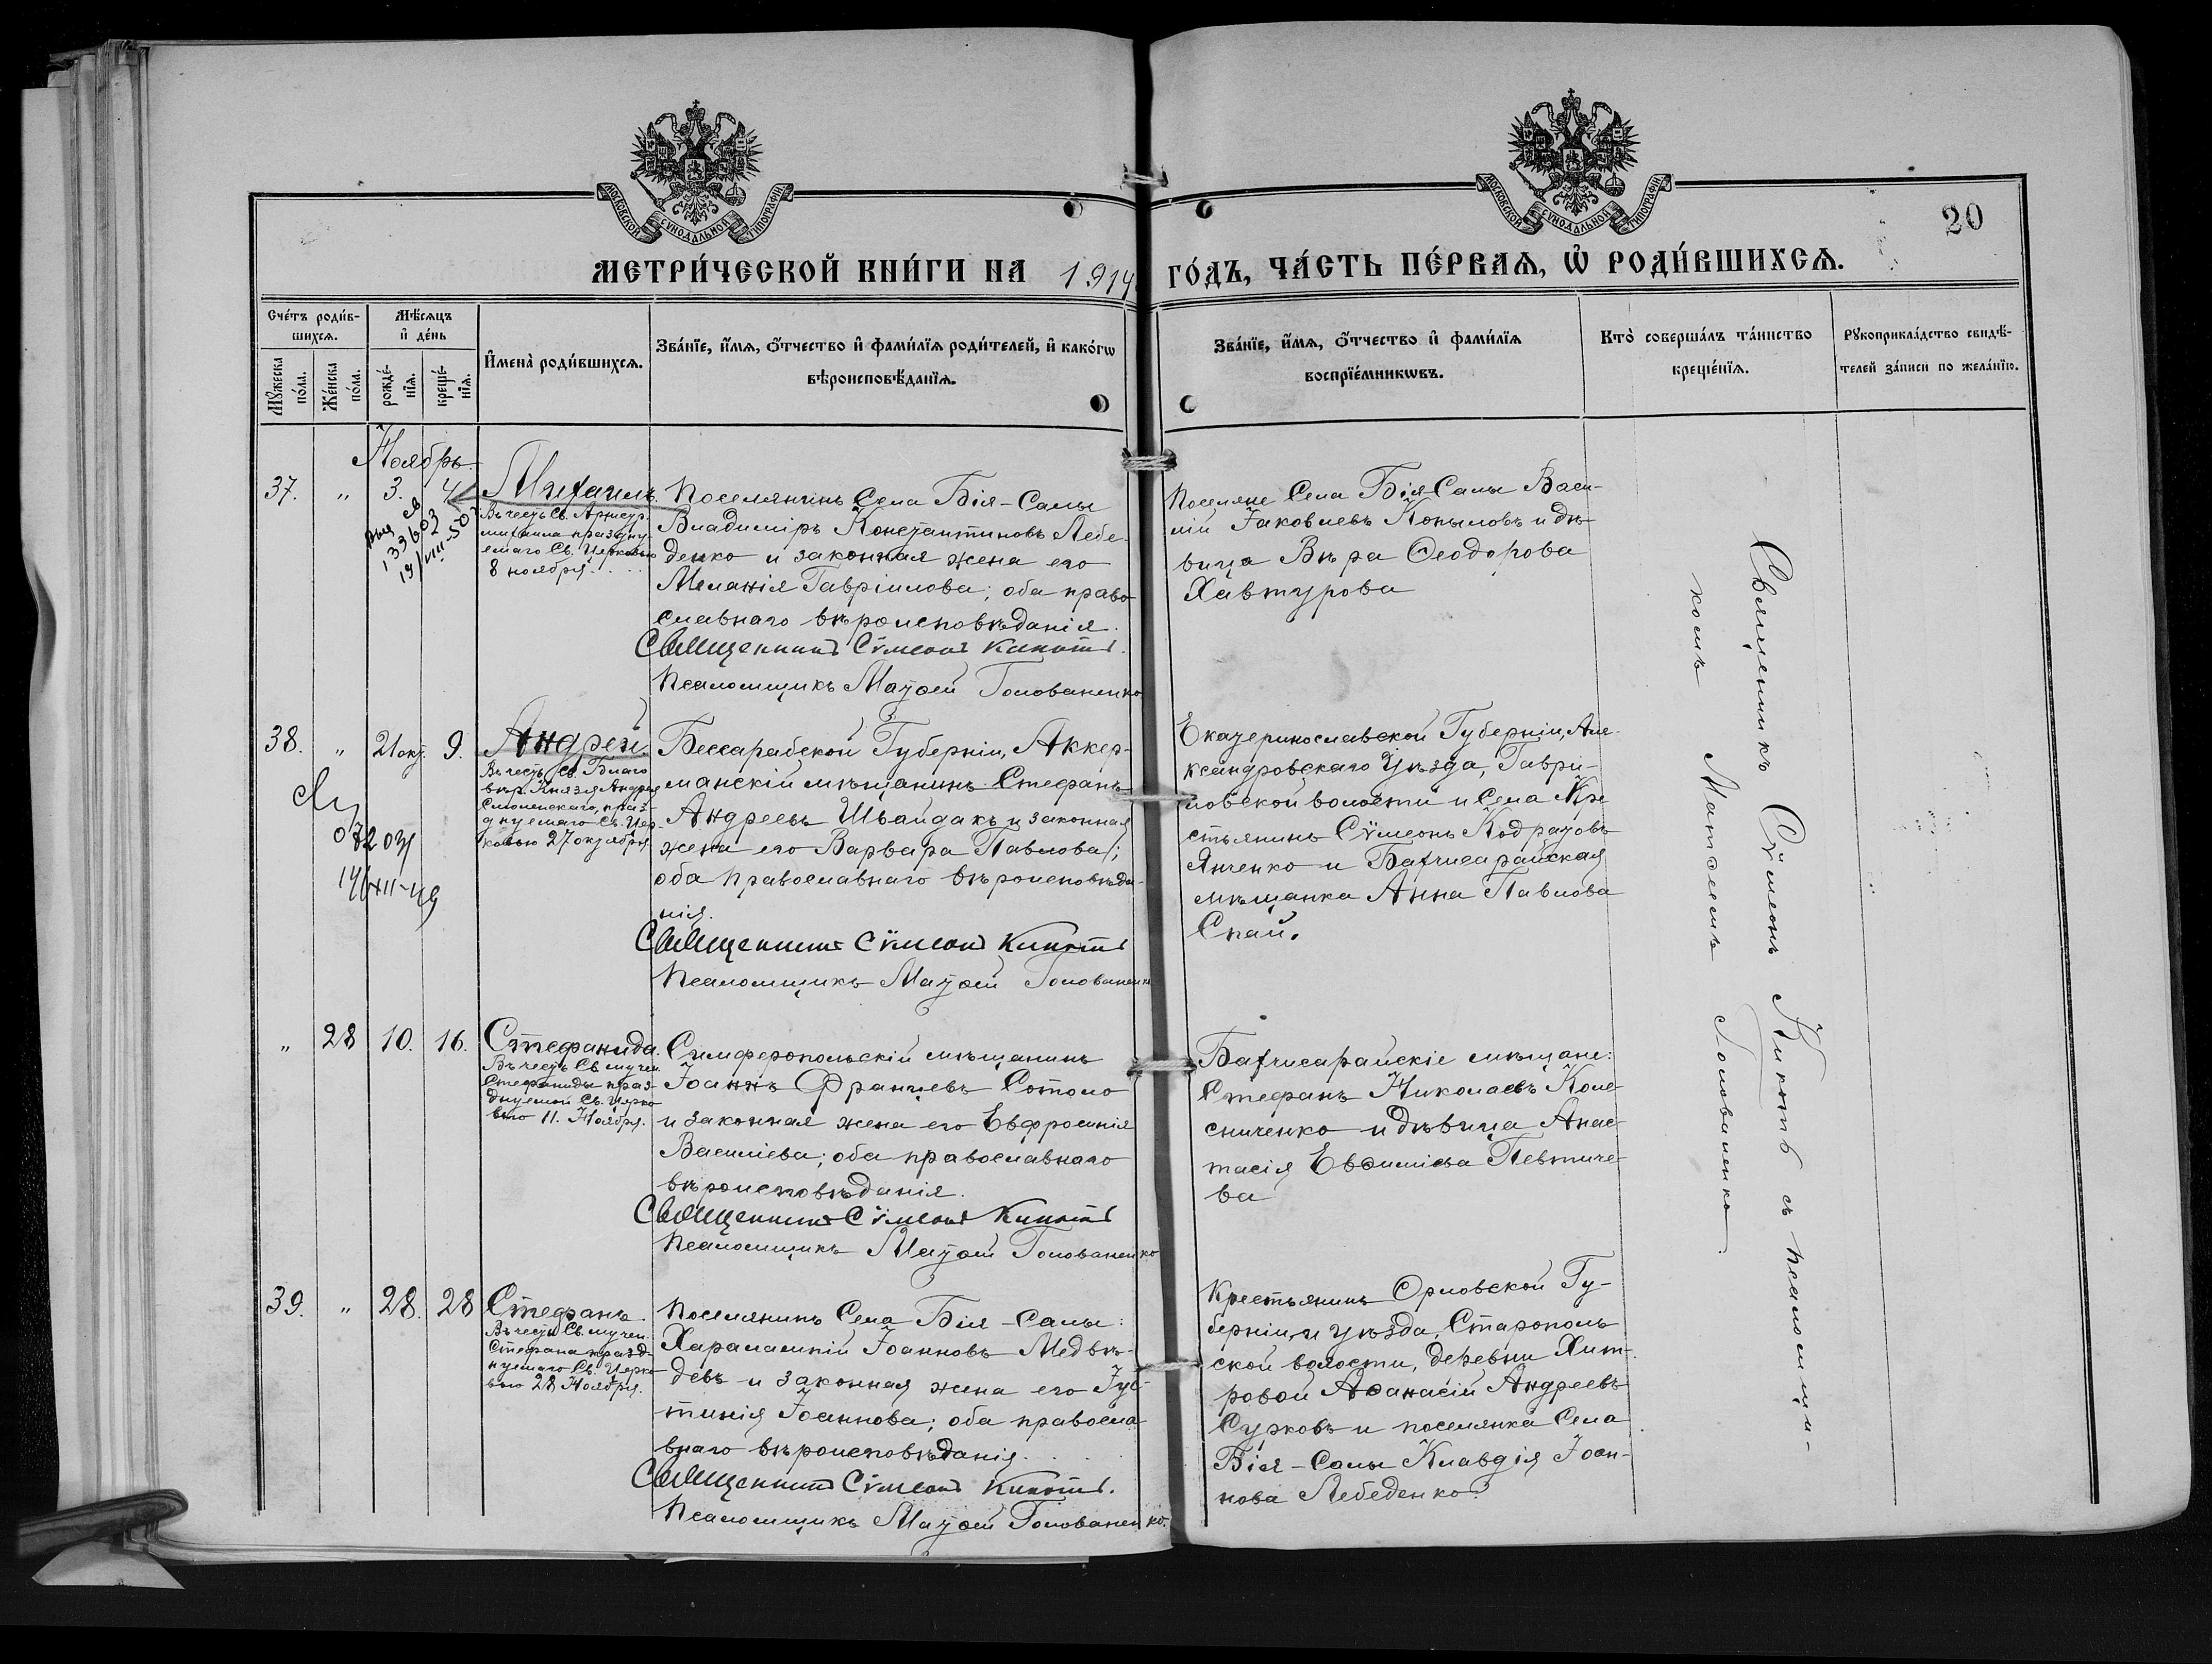 МОСКОВСКОЙ СѴНОДАЛЬНОЙ ТИПОГРАФІИ
МОСКОВСКОЙ СѴНОДАЛЬНОЙ ТИПОГРАФІИ
20
МЕТРИ́ЧЕСКОЙ КНИ́ГИ НА 1914 ГО́ДЪ, ЧА́СТЬ ПЕ́РВАѦ, Ѡ҆ РОДИ́ВШИХСѦ.
Сче́тъ роди́в-
шихсѧ.
Мꙋ́жеска по́ла.
Же́нска по́ла.
Мѣ́сѧцъ
и҆ де́нь
рожде́-
нїѧ.
креще́-
нїѧ.
И҆мена̀ роди́вшихсѧ.
Зва́нїе, и҆́мѧ, ѻ҆́тчество и҆ фами́лїѧ роди́телей, и҆ како́гѡ
вѣроисповѣ́данїѧ.
Зва́нїе, и҆́мѧ, ѻ҆́тчество и҆ фами́лїѧ
воспрїе́мникѡвъ.
Кто̀ соверша́лъ та́инство
креще́нїѧ.
Рꙋкоприкла́дство свидѣ́-
телей за́писи по жела́нїю.
Ноябрь
37. " 3. 4
Михаилъ.
Въ честь Св. Архистр.
михаила праздну-
емаго Св. Церковью
8 ноября
133603
Поселянинъ Села Бія-Салы
Владиміръ Константиновъ Лебе-
денко и законная жена его
Меланія Гавріилова; оба право-
славнаго вѣроисповѣданія.
Священникъ Сѵмеонъ Кипотъ.
Псаломщикъ Матѳей Голованенко
Поселяне Села Бія-Салы Васи-
лій Іаковлевъ Копыловъ и дѣ-
вица Вѣра Ѳеодорова
Хавтурова
38. " 21 окт. 9.
Андрей.
Въ честь Св. Благо-
вѣр. Князя Андрея
Смоленскаго, праз-
днуемаго Св. Цер-
ковью 27 октября
Бессарабской Губерніи, Аккер-
манскій мѣщанинъ Стефанъ
Андреевъ Швайдакъ и законная
жена его Варвара Павлова;
оба православнаго вѣроисповѣда-
нія.
Священникъ Сѵмеонъ Кипотъ
Псаломщикъ Матѳей Голованенко
Екатеринославской Губерніи, Але-
ксандровскаго Уѣзда, Гаври-
ловской волости и Села Кре-
стьянинъ Сѵмеонъ Кодратовъ
Янченко и Бахчисарайская
мѣщанка Анна Павлова
Спай.
" 28 10. 16.
Стефанида.
Въ честь Св. мучен.
Стефаниды праз-
днуемой Св. Церко-
вью 11. Ноября.
Симферопольскій мѣщанинъ
Іоаннъ Францевъ Сотоло
и законная жена его Евфросинія
Василіева; оба православнаго
вѣроисповѣданія.
Священникъ Сѵмеонъ Кипотъ
Псаломщикъ Матѳей Голованенко
Бахчисарайскіе мѣщане:
Стефанъ Николаевъ Коле-
сниченко и дѣвица Анас-
тасія Евѳиміева Певтиче-
ва
39. " 28. 28
Стефанъ.
Въ честь Св. мучен.
Стефана празд-
нуемаго Св. Церко-
вью 28 Ноября.
Поселянинъ Села Бія-Салы:
Харалампій Іоанновъ Медвѣ-
девъ и законная жена его Іус-
тинія Іоаннова; оба правосла-
внаго вѣроисповѣданія.
Священникъ Сѵмеонъ Кипотъ.
Псаломщикъ Матѳей Голованенко.
Крестьянинъ Орловской Гу-
берніи и уѣзда, Старополь-
ской волости, деревни Хит-
ровой Аѳанасій Андреевъ
Сурковъ и поселянка Села
Бія-Салы Клавдія Іоан-
нова Лебеденко.
Священникъ Сѵмеонъ Кипотъ съ псаломщи-
комъ Матѳеемъ Голованенко.